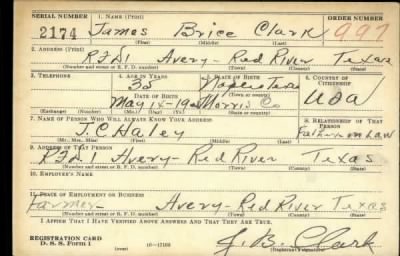 SERIAL NUMBER 1. NAME (Print) ORDER NUMBER
2174 James Brice Clark 997
(First) (Middle) (Last)
2. ADDRESS (Print)
RFD1 Avery - Red River Texas
(Number and street or R. F. D. number) (Town) (County) (State)
3. TELEPHONE 4. AGE IN YEARS 5. PLACE OF BIRTH 6. COUNTRY OF CITIZENSHIP
35 Naples Texas
DATE OF BIRTH (Town or county)
May 14-190 Morris Co USA
(Exchange) (Number) (Mo.) (Day) (Yr.) (State or country)
7. NAME OF PERSON WHO WILL ALWAYS KNOW YOUR ADDRESS 8. RELATIONSHIP OF THAT PERSON
J.C. Haley Father in Law
(Mr., Mrs., Miss) (First) (Middle) (Last)
9. ADDRESS OF THAT PERSON
RFD1 Avery - Red River Texas
(Number and street or R. F. D. number) (Town) (County) (State)
10. EMPLOYER'S NAME
11. PLACE OF EMPLOYMENT OR BUSINESS
Farmer Avery - Red River Texas
(Number and street or R. F. D. number) (Town) (County) (State)
I AFFIRM THAT I HAVE VERIFIED ABOVE ANSWERS AND THAT THEY ARE TRUE.
REGISTRATION CARD
D. S. S. Form 1 J. B. Clark
(Registrant's signature)